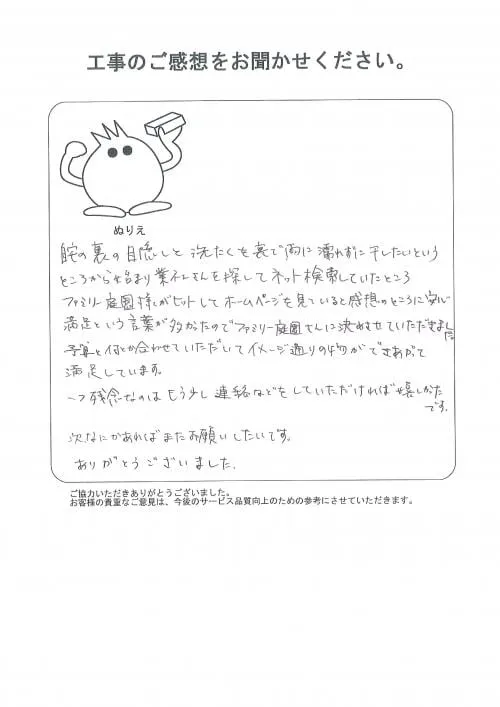 工事のご感想をお聞かせください。
ぬりえ
宅の裏の目隠しと洗たくを裏で雨に濡れずに干したいという
ところから始まり業社さんを探してネット検索していたところ
ファミリー庭園様がヒットしてホームページを見ていると感想のところに安心
満足という言葉が多かったのでファミリー庭園さんに決めさせていただきました
予算と何とか合わせていただいてイメージ通りの物ができあがって
満足しています。
一つ残念なのはもう少し連絡などをしていただければ嬉しかった
です。
次なにかあればまたお願いしたいです。
ありがとうございました。
ご協力いただきありがとうございました。
お客様の貴重なご意見は、今後のサービス品質向上のための参考にさせていただきます。